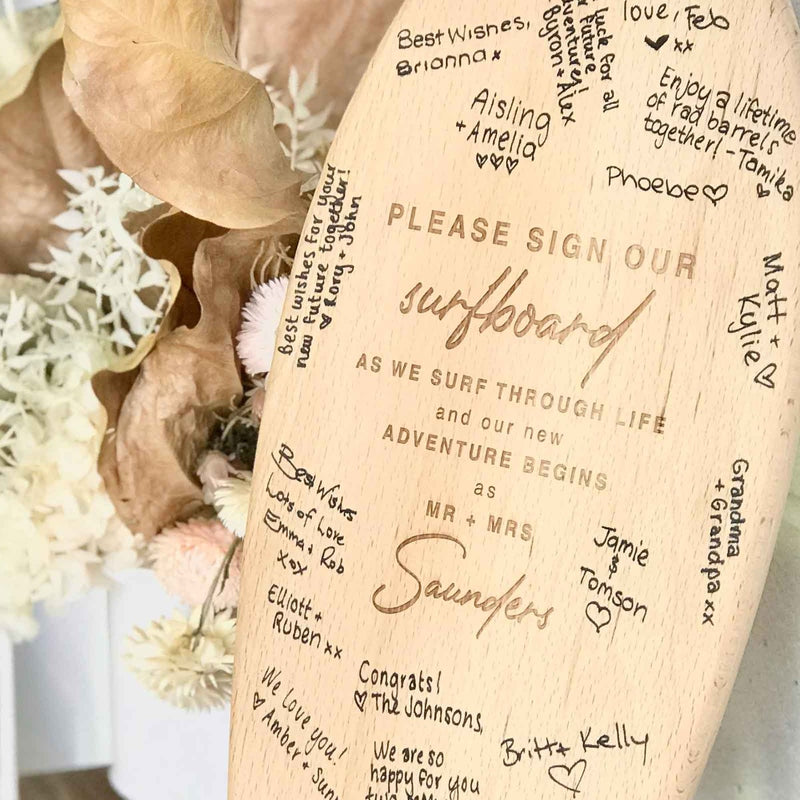 Best Wishes,
Brianna x
luck for all
r future
dventures!
Byron + Alex
love, Feb
♥ xx
Enjoy a lifetime
of rad barrels
together! - Tamika
Aisling
+ Amelia
♡♡♡
Phoebe ♡
Best wishes for your
new future together!
♡ Rory + John
PLEASE SIGN OUR
surfboard
AS WE SURF THROUGH LIFE
and our new
ADVENTURE BEGINS
as
MR + MRS
Saunders
Matt +
Kylie ♡
Grandma
+ Grandpa xx
Best Wishes
Lots of Love
Emma + Rob
xox
Jamie
&
Tomson
♡
Elliott +
Ruben xx
We love you!
♡ Amber +
Congrats!
♡ The Johnsons,
We are so
happy for you
Britt + Kelly
♡